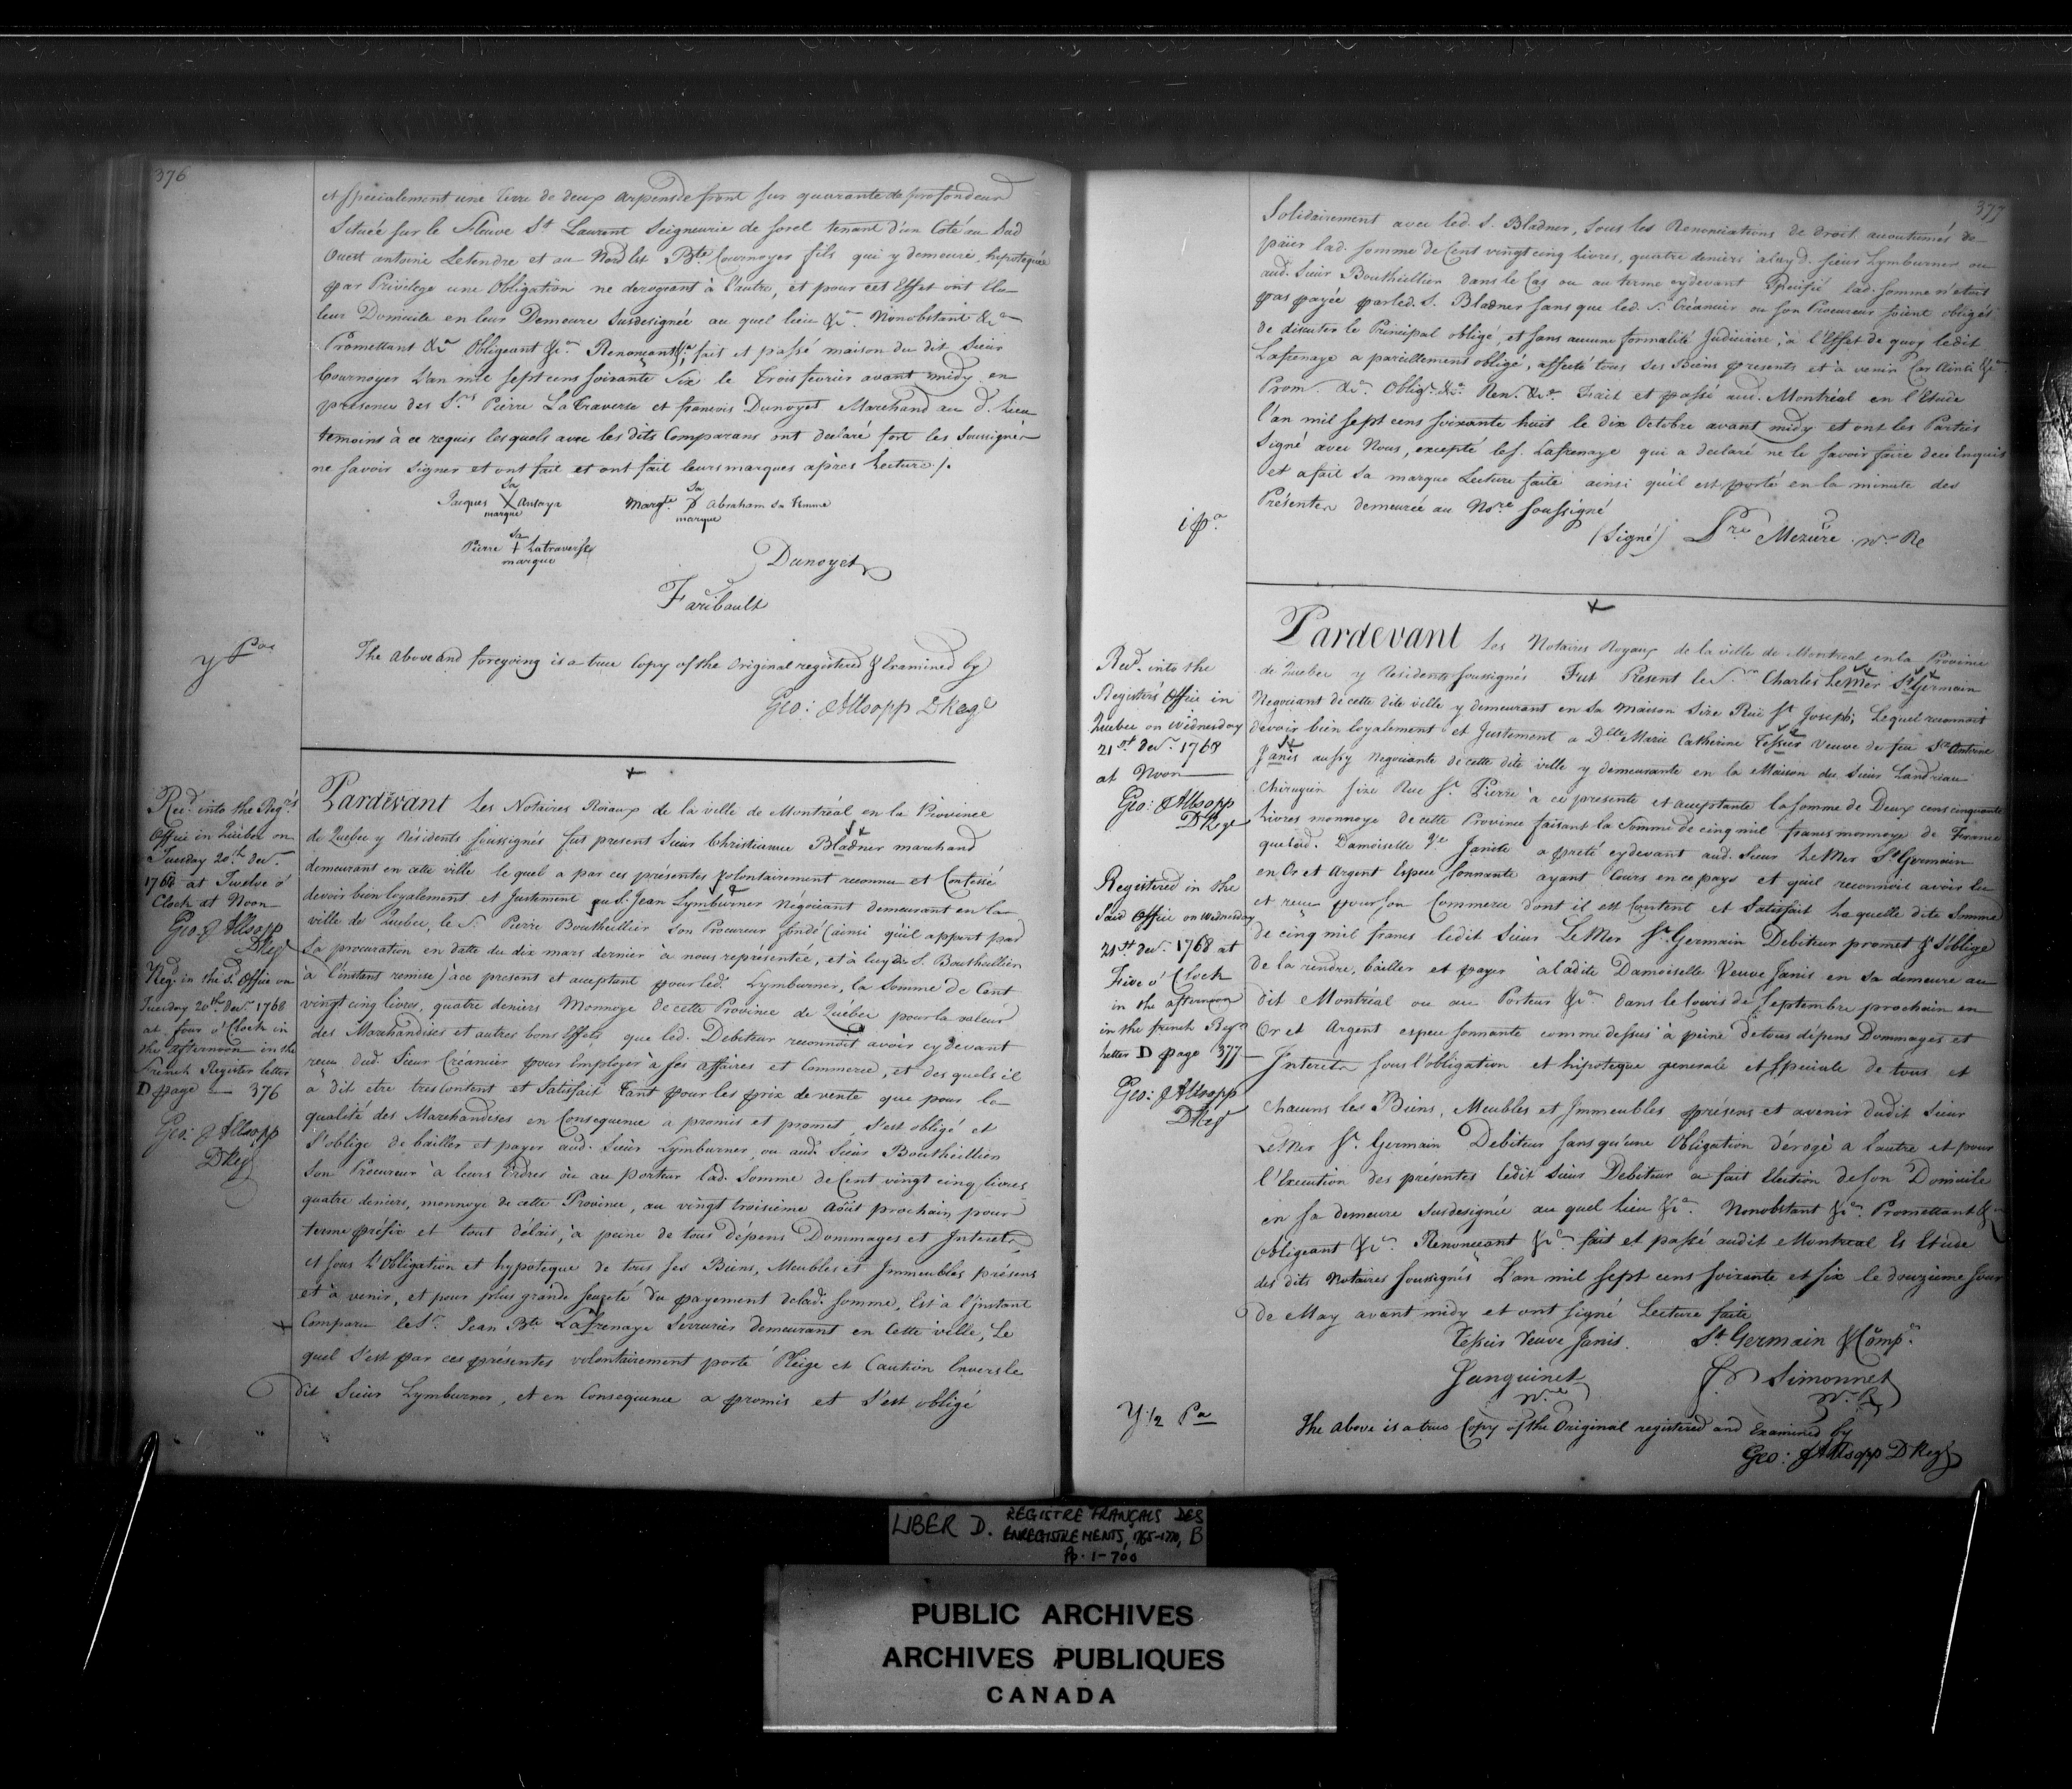 376
et specialement une Terre de deux arpens de front sur quarante de profondeur
Située sur le Fleuve St Laurent Seigneurie de Sorel tenant d'un Coté au Sud
Ouest antoine Letendre et au Nord Est Bte Cournoyer fils qui y demeure, hipotequée
par Privilege une Obligation ne derogeant à l'autre, et pour cet Effet ont Elu
leur Domicile en leur Demeure Susdesignée au quel lieu &ca. Nonobstant &ca
Promettant &ca Obligeant &ca. Renonçant &ca, fait et passé maison du dit Sieur
Cournoyer L'an mil sept cens soixante Six le Trois fevrier avant midy en
présence des Srs Pierre La Traverse et francois Dunoyet Marchand au d. Lieu
temoins à ce requis lesquels avec les dits Comparans ont declaré fort les Soussignés
ne savoir Signer et ont fait et ont fait leurs marques après Lecture /.
Jacques Sa X marque Ansaye Margte. Sa X marque Abraham Sa femme
Pierre Sa + marque Latraverse
Dunoyet
Faribault
y Pae
The Above and foregoing is a true Copy of the Original registered & Examined by
Geo: Allsopp DRegr
Recd. into the Regrs
Office in Quebec on
Tuesday 20.th Decr.
1768 at Twelve o'
Clock at Noon
Geo: Allsopp
DRegr
Reg. in the sd. Office on
Tuesday 20th. Decr. 1768
at four o'Clock in
the afternoon in the
French Register letter
D page — 376
Geo: Allsopp
DRegr
Pardevant Les Notaires Roiaux de la ville de Montréal en la Province
de Quebec y Résidents soussignés fut present Sieur Christianne Bladner marchand
demeurant en cette ville lequel a par ces présentes volontairement reconnu et Confessé
devoir bien loyalement et Justement au S. Jean Lymburner Négociant demeurant en la
ville de Quebec, le S. Pierre Boutheillier Son Procureur fondé (ainsi qu'il appert par
Sa procuration en datte du dix mars dernier à nous représentée, et à luy dit S. Boutheillier
à l'instant remise) à ce present et acceptant pour led. Lymburner, la Somme de Cent
vingt cinq livres, quatre deniers Monnoye de cette Province de Québec pour la valeur
des Marchandises et autres bons Effets que led. Debiteur reconnoît avoir cy devant
reçu dud. Sieur Créancier pour Employer à ses affaires et Commerce, et des quels il
a dit etre tres Content et Satisfait Tant pour les prix de vente que pour la
qualité des Marchandises en Consequence a promis et promet, s'est obligé et
s'oblige de bailler et payer aud. Sieur Lymburner, ou aud. Sieur Boutheillier
Son Procureur à leurs Ordres ou au porteur lad. Somme de Cent vingt cinq livres
quatre deniers, monnoye de cette Province, au vingt troisieme Août prochain pour
terme préfix et tout délais, à peine de tous dépens Dommages et Interets,
et sous L'Obligation et hypoteque de tous ses Biens, Meubles et Immeubles présens
et à venir, et pour plus grande seureté du payement de lad. Somme, Est à l'instant
Comparu le Sr. Jean Bte Lafrenaye Serrurier demeurant en Cette ville, Le
quel s'est par ces présentes volontairement porté Pleige et Caution Envers le
dit Sieur Lymburner, et en Consequence a promis et s'est obligé
377
Solidairement avec led. S. Bladner, Sous les Renonciations de droit accoutumés de
païer lad. Somme de Cent vingt cinq livres, quatre deniers à luy d. Sieur Lymburner ou
aud. Sieur Boutheillier dans le Cas ou au terme cy devant Specifié lad. somme n'etoit
pas payée par led. S. Bladner sans que led. Sr. Créancier ou Son Procureur soient obligés
de discuter le Principal obligé, et sans aucune formalité Judiciaire, à l'Effet de quoy ledit
Lafrenaye a pareillement obligé, affecté tous ses Biens presents et à venir Car Ainsi &ca
Prom. &ca. Oblig. &ca. Ren. &ca. Fait et passé aud. Montréal en l'Etude
l'an mil sept cens soixante huit le dix Octobre avant midy et ont les Parties
Signé avec Nous, excepté le S. Lafrenaye qui a declaré ne le Savoir faire de ce Enquis
et a fait Sa marque Lecture faite ainsi qu'il est porté en la minute des
Présentes demeurée au Nore soussigné
(Signé) Pre Mezière. Nre. Re
Recd. into the
Registers Office in
Quebec on Wednesday
21st. Decr. 1768
at Noon —
Geo: Allsopp
DRegr
Registered in the
Said Office on Wednesday
21st. Decr. 1768 at
Five o'Clock
in the afternoon
in the french Regr
letter D page 377 —
Geo: Allsopp
DRegr
Pardevant Les Notaires Royaux de la ville de Montreal en la Province
de Quebec y Residents soussignés Fut Present le Sr. Charles LeMer St Germain
Negociant de cette dite ville y demeurant en Sa Maison Size Ruë St Joseph; Lequel reconnoit
devoir bien loyalement et Justement a Dlle Marie Catherine Tessier veuve de feu Sr Antoine
Janis aussy Negociante de cette dite ville y demeurante en la Maison du Sieur Landriau
Chirurgien size Rue St. Pierre à ce presente et acceptante la Somme de Deux cens cinquante
Livres monnoye de cette Province faisant la Somme de cinq mil francs monnoye de France
que lad. Damoiselle Ve Janite a preté cy devant aud. Sieur LeMer St Germain
en Or et Argent Espece Sonnante ayant Cours en ce pays et qu'il reconnoit avoir eu
et reçu pour son Commerce dont il est Content et Satisfait Laquelle dite Somme
de cinq mil francs ledit Sieur LeMer St Germain Debiteur promet & s'oblige
de la rendre, bailler et payer à la dite Damoiselle Veuve Janis en sa demeure au
dit Montréal ou au Porteur &ca. dans le Cours de Septembre prochain en
Or et Argent espece sonnante comme dessus à peine de tous dépens Dommages et
Interets sous l'obligation et hipoteque generale et speciale de tous et
chacuns les Biens, Meubles et Immeubles présens et avenir dudit Sieur
LeMer St. Germain Debiteur sans qu'une Obligation déroge a l'autre et pour
l'Execution des présentes ledit Sieur Debiteur a fait Election de son Domicile
en sa demeure Susdesignée au quel lieu &ca. Nonobstant &ca. Promettant &ca
obligeant &ca. Renonçant &ca. fait et passé audit Montreal Es Etude
des dits Notaires soussignés L'an mil sept cens soixante et six le douzieme Jour
de May avant midy et ont signé Lecture faite
Tessier Veuve Janis. St Germain & Comp.
Sanguinet Nre
Simonnet
Y 1/2 Pa
The Above is a true Copy of the Original registered and Examined by
Geo: Allsopp DRegr
LIBER D. REGISTRE FRANÇAIS DES
ENREGISTREMENTS, 1765-1770, B
Pp. 1-700
PUBLIC ARCHIVES
ARCHIVES PUBLIQUES
CANADA